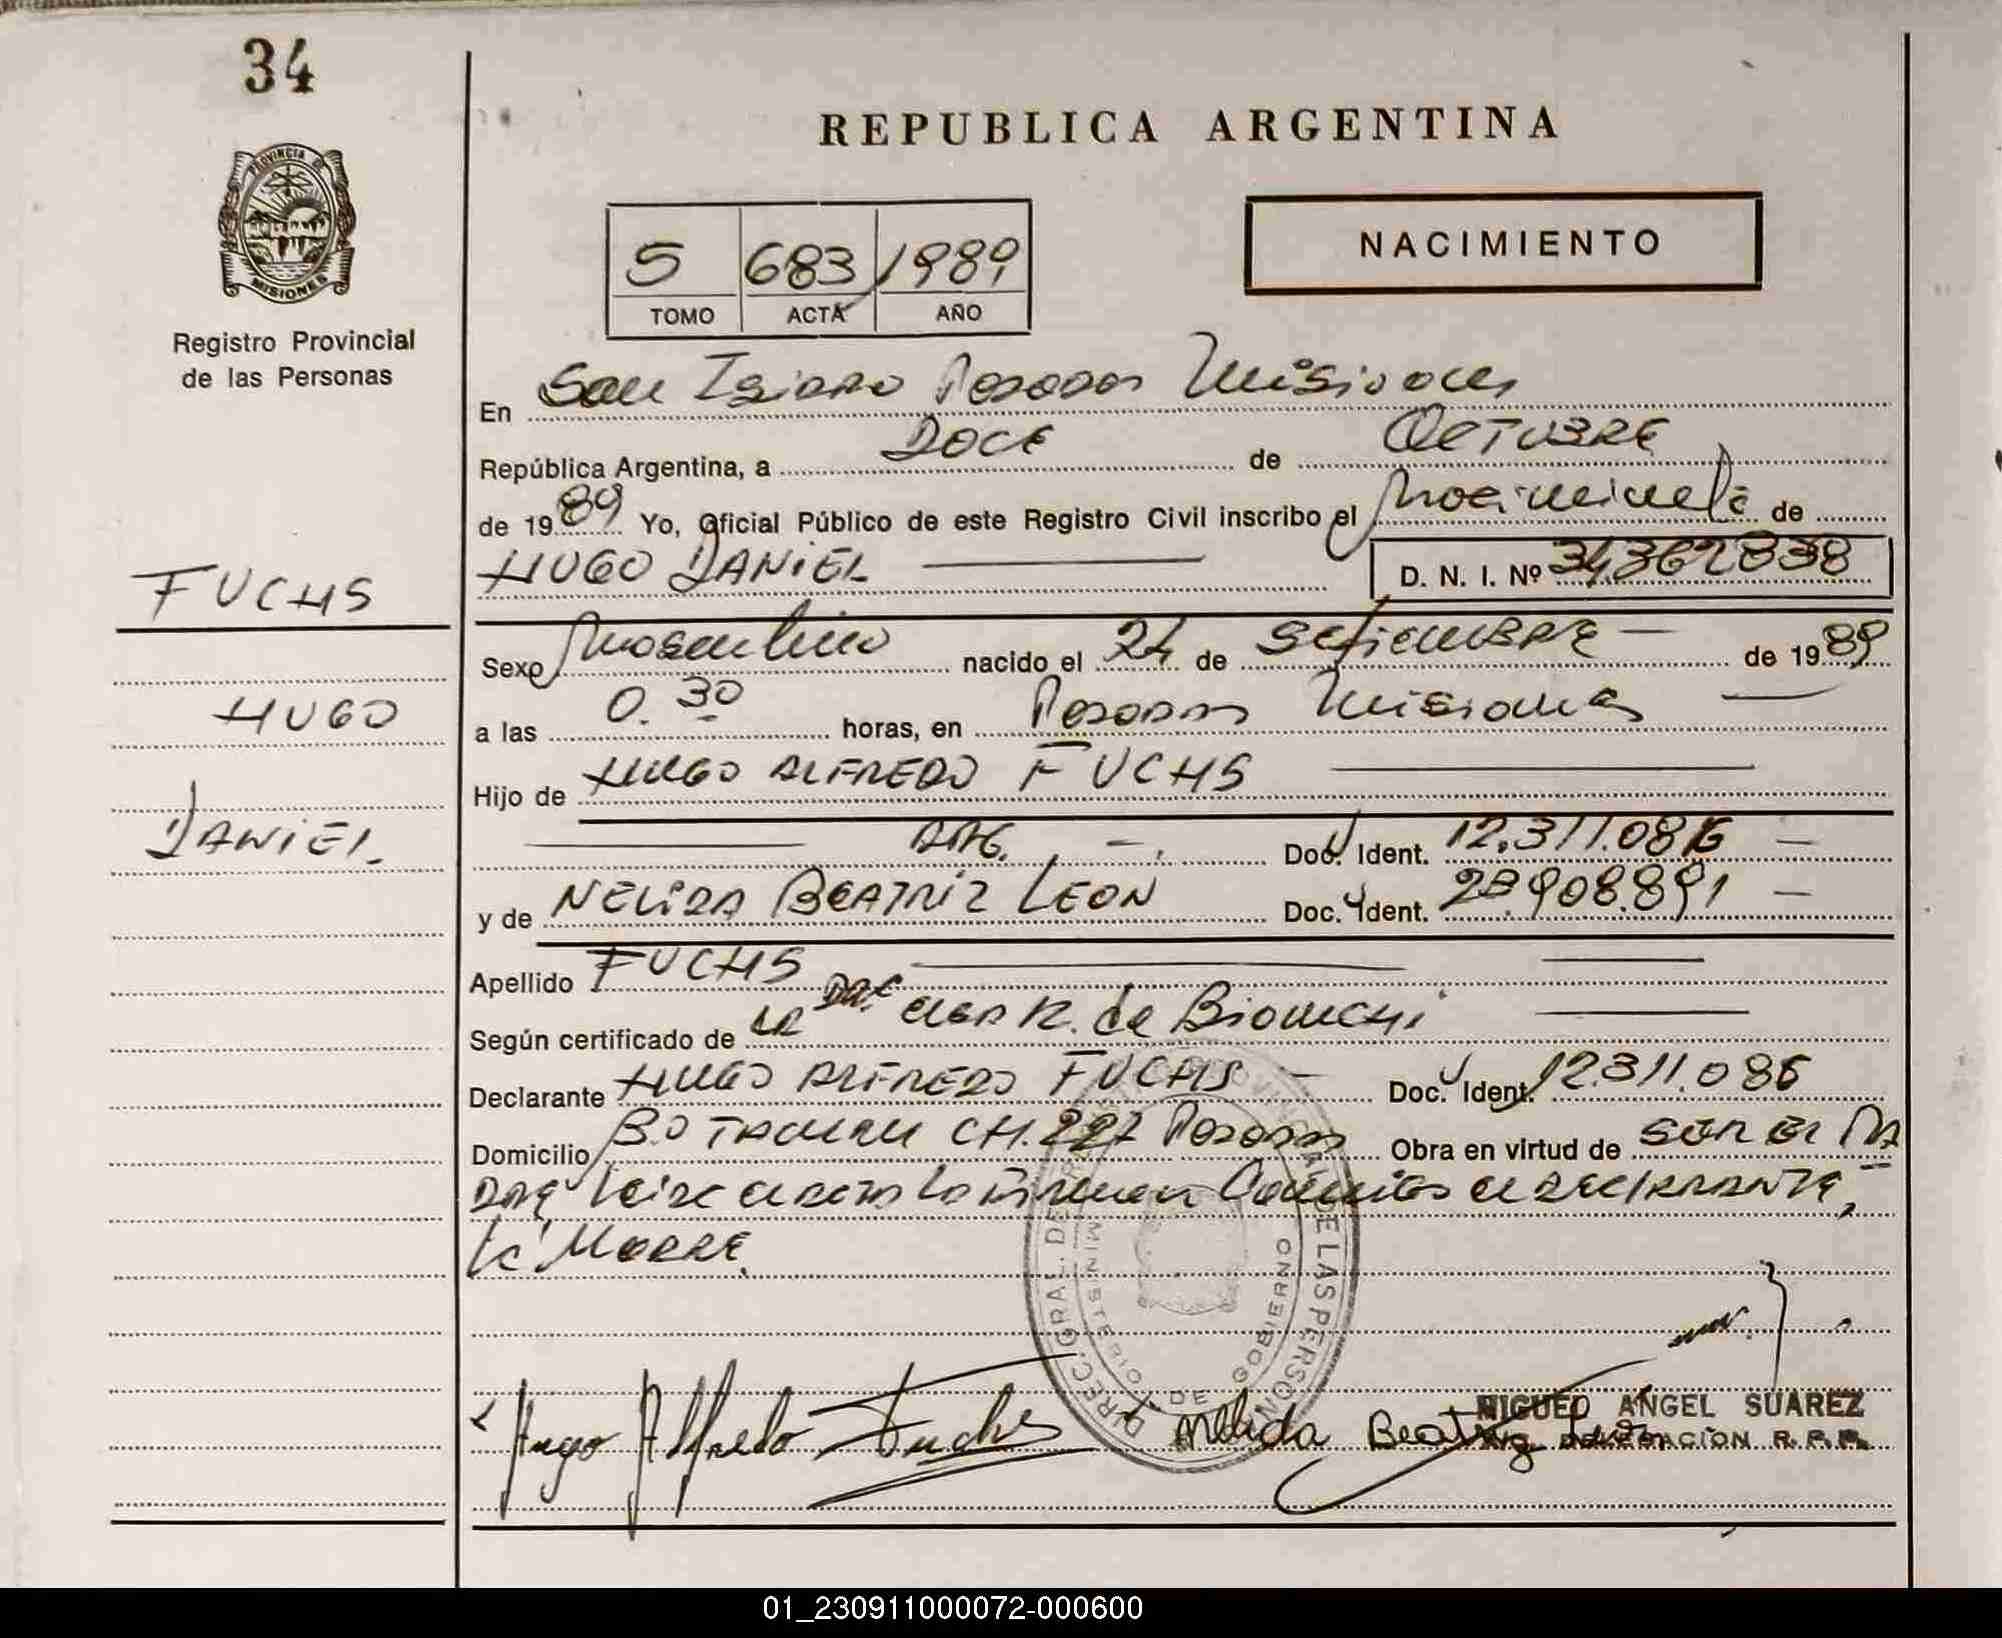 34
REPUBLICA ARGENTINA
PROVINCIA DE
MISIONES
Registro Provincial
de las Personas
5 683 1989
TOMO ACTA AÑO
NACIMIENTO
En San Isidro Posadas Misiones
República Argentina, a DOCE de OCTUBRE
de 1989 Yo, Oficial Público de este Registro Civil inscribo el Nacimiento de
HUGO DANIEL D. N. I. Nº 34.362838
FUCHS
HUGO
DANIEL
Sexo Masculino nacido el 24 de SETIEMBRE de 1989
a las 0.30 horas, en Posadas Misiones
Hijo de HUGO ALFREDO FUCHS
ARG. Doc. Ident. 12.311.086
y de NELIDA BEATRIZ LEON Doc. Ident. 908.891
Apellido FUCHS
Según certificado de LA DRA. R. de Bianchi
Declarante HUGO ALFREDO FUCHS Doc. Ident. 12.311.086
Domicilio CH. Posadas Obra en virtud de SER EL PA
DRE DECLARANTE,
MADRE.
DIREC. GRAL. DE REGISTRO PROVINCIAL DE LAS PERSONAS
MINISTERIO DE GOBIERNO
Hugo Alfredo Fuchs Nélida Beatriz León
MIGUEL ANGEL SUAREZ
DELEGACION R.P.P.
01_230911000072-000600